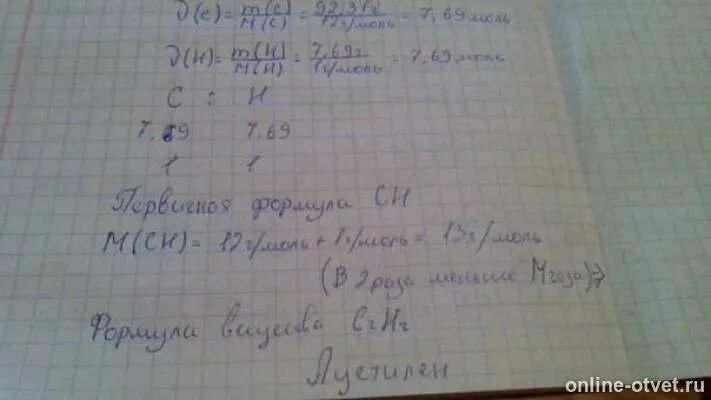 ν(C) = m(C)/M(C) = 92,31г/12г/моль = 7,69 моль
ν(H) = m(H)/M(H) = 7,69г/1г/моль = 7,69 моль
C : H
7,69 7,69
1 1
Первичная формула CH
M(CH) = 12г/моль + 1г/моль = 13г/моль
(В 2 раза меньше M газа) ⇒
Формула вещества C₂H₂
Ацетилен
online-otvet.ru